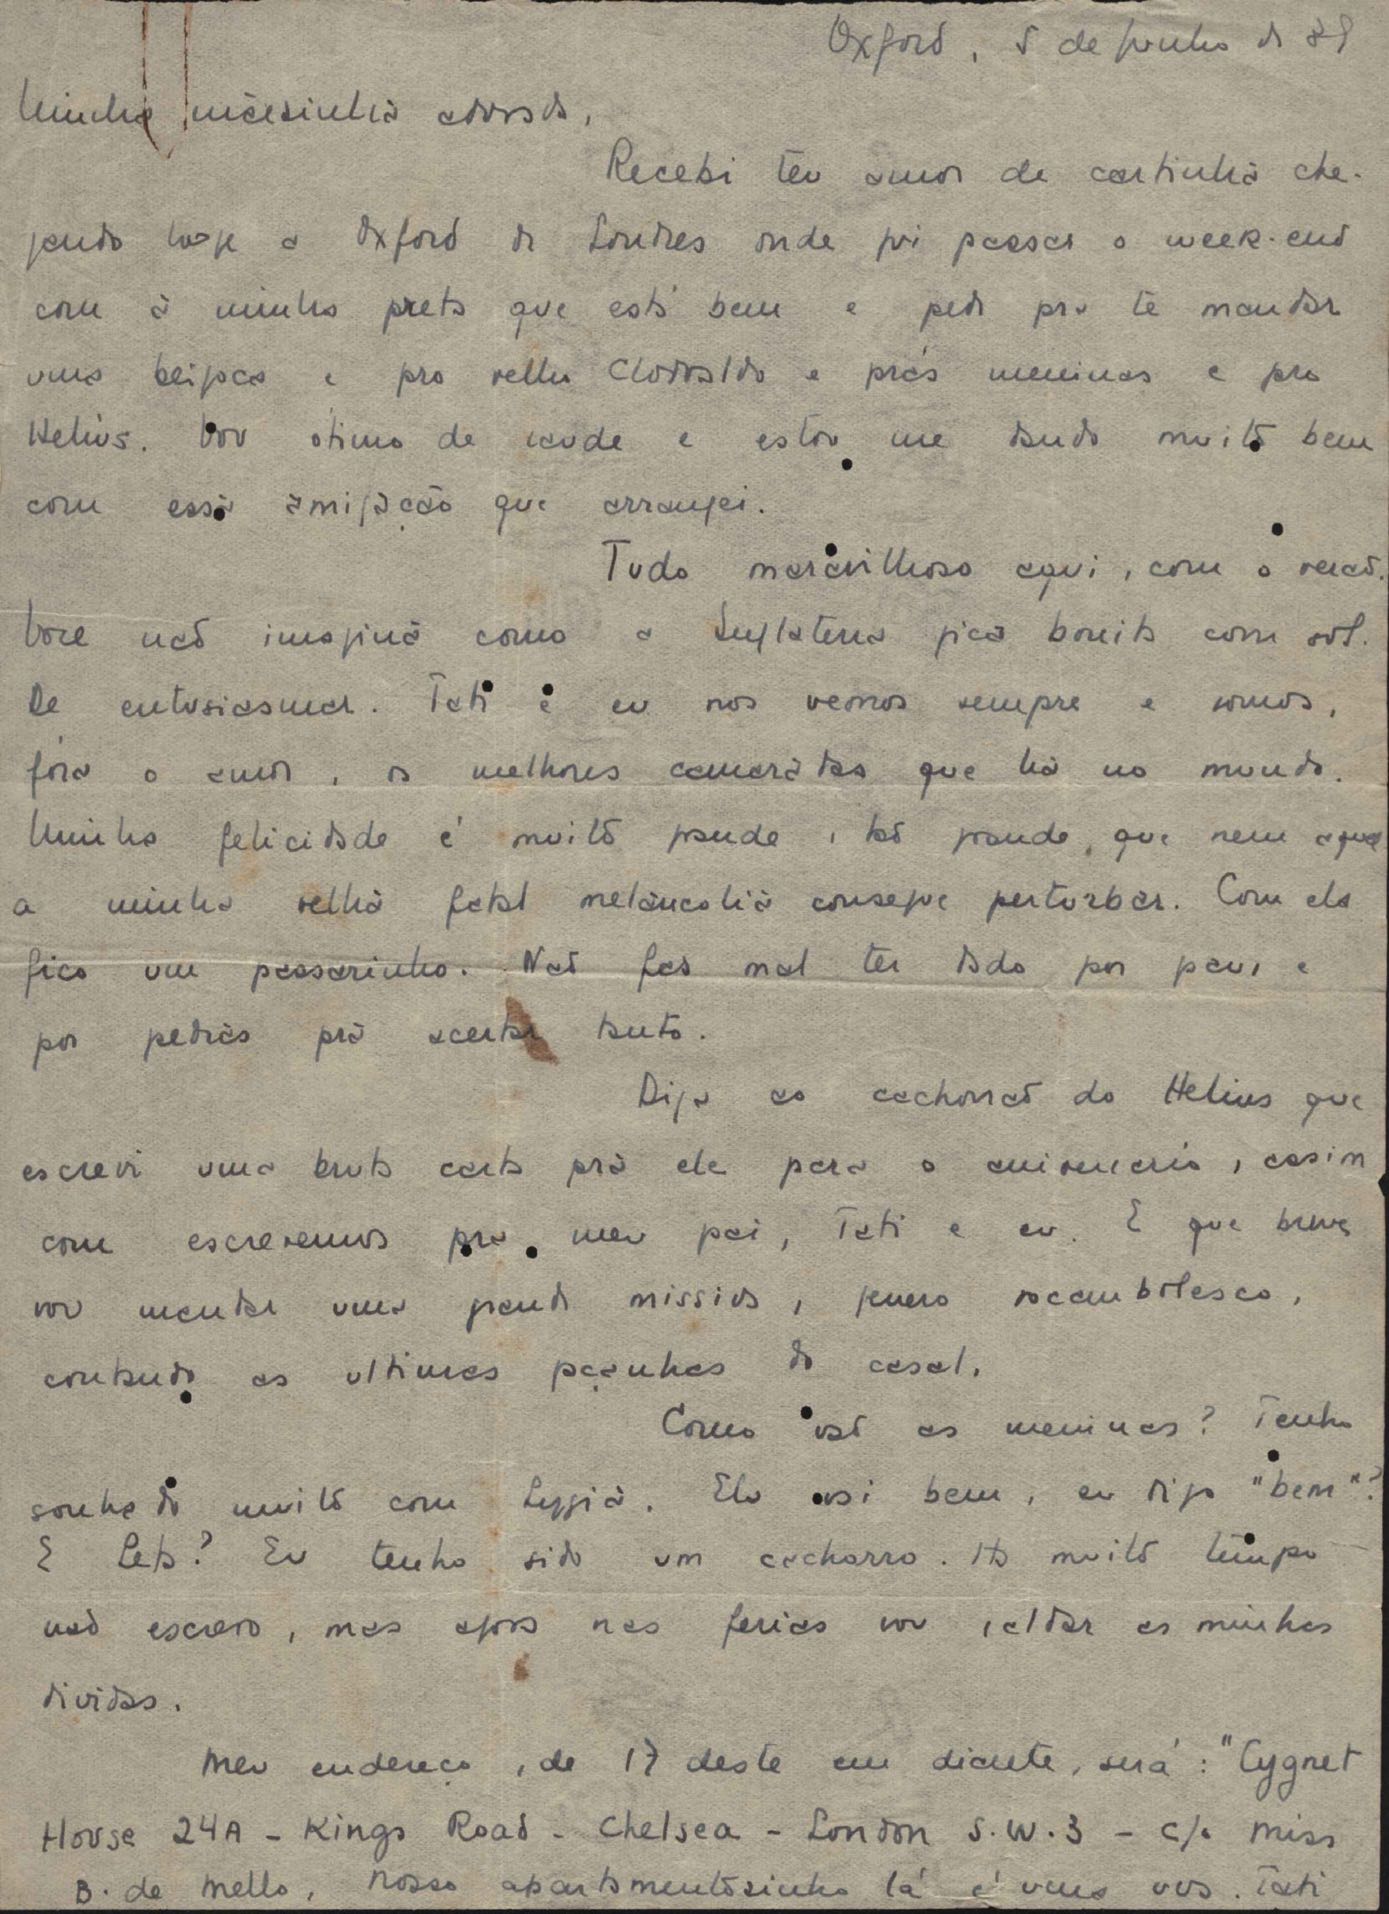 Oxford, 5 de junho de 39
Minha mãesinha adorada,
Recebi teu amor de cartinha che-
gando hoje a Oxford de Londres onde fui passar o week-end
com a minha preta que está bem e pede pra te mandar
uns beijos e pro velho Clodoaldo e prás meninas e pro
Helius. Vou ótimo de saude e estou me dando muito bem
com essa amigação que arranjei.
Tudo maravilhoso aqui, com o verão.
Voce não imagina como a Inglaterra fica bonita com sol.
De entusiasmar. Tati e eu nos vemos sempre e somos,
fóra o amor, os melhores camaradas que há no mundo.
Minha felicidade é muito grande, tão grande que nem
a minha velha fatal melancolia consegue perturbar. Com ela
fico um passarinho. Não faz mal ter dado por paus e
por pedras prá acertar tanto.
Diga ao cachorrão do Helius que
escrevi uma bruta carta prá ele para o aniversario, assim
com escrevemos pra meu pai, Tati e eu. E que breve
vou mandar uma grande missiva, genero rocambolesco,
contando as ultimas façanhas do casal.
Como vão as meninas? Tenho
sonhado muito com Lygia. Ela vai bem, eu digo "bem"?
E Leta? Eu tenho sido um cachorro. Ha muito tempo
não escrevo, mas agora nas ferias vou saldar as minhas
dividas.
Meu endereço, de 17 deste em diante, será: "Cygnet
House 24A - Kings Road - Chelsea - London S.W.3 - c/o Miss
B. de Mello. Nosso apartamentosinho lá é uma uva. Tati